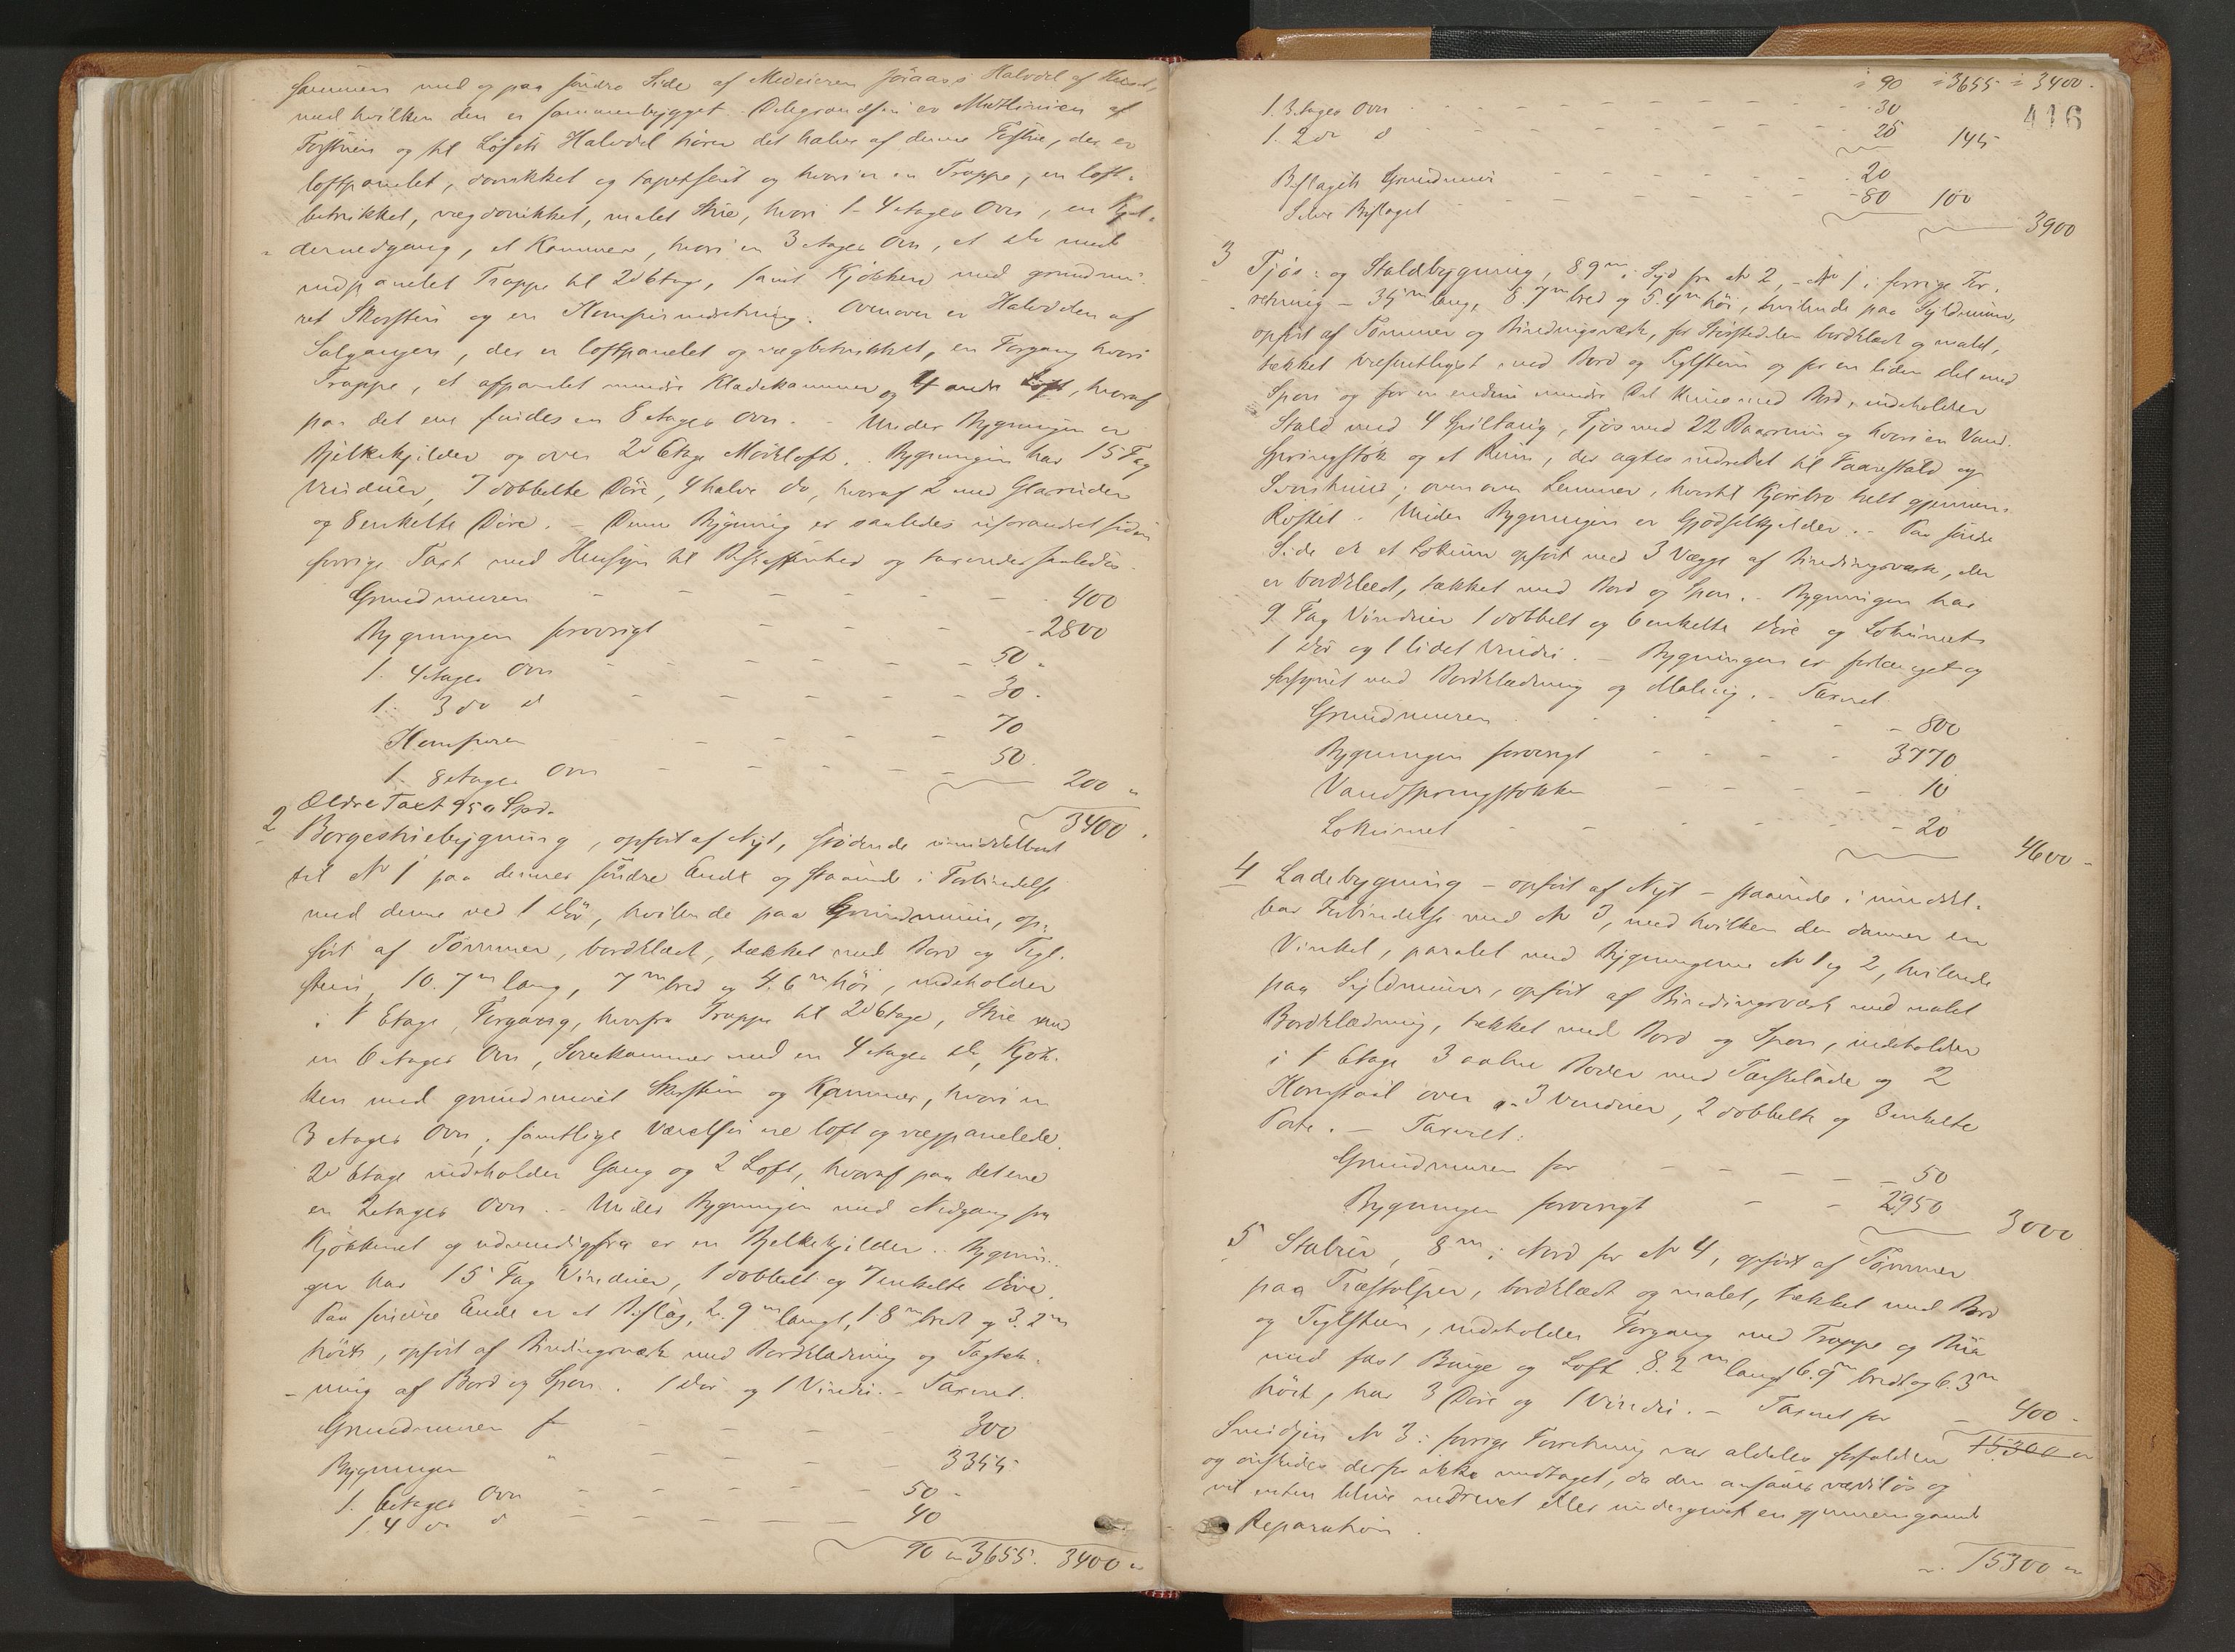 sammen med og paa søndre Side af Medeieren Joraass Halvdel af Huset,
med hvilken den er sammenbygget. Delegrændsen er Midtlinien af
Forstuen og til Løfets Halvdel hører det halve af denne Forstue, der er
loftpanelet, domkket og tapetseret og hvori er en Trappe, en loft-
betrukket, vægdomkket, malet Stue, hvori 1- 4 etages Ovn, en Kjel-
dernedgang, et Kammer, hvori en 3 etages Ovn, et do med
indpanelet Trappe til 2d Etage, samt Kjøkken med grundmu-
ret Skorsten og en Komfurindretning. Ovenover er Halvdelen af
Salgangen, der er loftpanelet og vægbetrukket, en Forgang hvori
Trappe, et afpanelet mindre Klædekammer og 4 andre Loft, hvoraf
paa det ene findes en 8 etages Ovn. - Under Bygningen er
Bjelkekjelder og over 2d Etage Mørkloft. Bygningen har 15 Fag
Vinduer, 7 dobbelte Døre, 4 halve do, hvoraf 2 med Glasruder
og 8 enkelte Døre. - Denne Bygning er saaledes uforandret siden
forrige Taxt med Hensyn til Beskaffenhed og taxeredes saaledes.
Grundmuren - - - - - - 400
Bygningen forøvrigt - - - - 2800
1. 4 etages Ovn - - - - - 50 "
1. 3 do d - - - - - 30 -
Komfuren - - - - 70
1. 8 etages Ovn - - - - - 50.
200 "
Ældre Taxt 950 Spd.
3400.
2 Borgestuebygning, opført af Nyt, stødende umiddelbart
til No 1 paa dennes søndre Ende og staaende i Forbindelse
med denne ved 1 Dør, hvilende paa Grundmuur, op-
ført af Tømmer, bordklædt, tækket med Bord og Tegl-
steen, 10.7m lang, 7m bred og 4.6m høi, indeholder
i 1 Etage, Forgang, hvorfra Trappe til 2d Etage, Stue med
en 6 etages Ovn, Sovekammer med en 4 etages do, Kjøk-
ken med grundmuret Skorsten og Kammer, hvori en
3 etages Ovn; samtlige Værelser ere loft og vægpanelede.
2d Etage indeholder Gang og 2 Loft, hvoraf paa det ene
en 2 etages Ovn. - Under Bygningen med Nedgang fra
Kjøkkenet og udvendigfra er en Bjelkekjelder. - Bygnin-
gen har 15 Fag Vinduer, 1 dobbelt og 7 enkelte Døre.
Paa søndre Ende er et Bislag, 2.9m langt, 1.8m bredt og 3.2m
høit, opført af Bindingsværk med Bordklædning og Tagtæk-
ning af Bord og Spon. 1 Dør og 1 Vindu. - Taxeret.
Grundmuren f - - - - 300
Bygningen " - - - - 3355
1. 6 etages Ovn - - - - - 50 -
1. 4 do d - - - - - 40
90 " 3655. 3400 "
÷ 90 ÷ 3655 ÷ 3400.
416
1. 3 etages Ovn - - - - - - 30
1. 2 do d - - - - - - 25 145
Bislagets Grundmuur - - - - - 20
Selve Bislaget - - - - - 80 100
3900
3 Fjøs- og Staldbygning, 89m i Syd fra No 2, - No 1 i forrige For-
retning - 35m lang, 8.7m bred og 5.4m høi, hvilende paa Syldmuur,
opført af Tømmer og Bindingsværk, for Størstedelen bordklædt og malt,
tækket væsentligst med Bord og Teglsteen og for en liden Del med
Spon og for en endnu mindre Del kun med Bord, indeholder
Stald med 4 Spiltaug, Fjøs med 22 Baasrum og hvori en Vand-
springstok og et Rum, der agtes indredet til Faarestald og
Svinehuus; ovenover Lemmer, hvortil Kjørebro helt gjennem
Røstet. Under Bygningen er Gjødselkjelder. - Paa søndre
Side er et Lokum opført med 3 Vægge af Bindingsværk, der
er bordklædt, tækket med Bord og Spon. - Bygningen har
9 Fag Vinduer 1 dobbelt og 6 enkelte Døre og Lokumet
1 Dør og 1 lidet Vindu. - Bygningen er forlænget og
forsynet med Bordklædning og Maling. - Taxeret
Grundmuren - - - - - 800
Bygningen forøvrigt - - - - 3770
Vandspringstokken - - - - - 10
Lokumet - - - - - - 20
4600 -
4 Ladebygning - opført af Nyt - staaende i umiddel-
bar Forbindelse med No 3, med hvilken den danner en
Vinkel, paralel med Bygningerne No 1 og 2, hvilende
paa Syldmuur, opført af Bindingsværk med malet
Bordklædning, tækket med Bord og Spon, indeholder
i 1 Etage 3 aabne Boder med Tærskelade og 2
Kornstaal over a. 3 Vinduer, 2 dobbelte og 3 enkelte
Porte. - Taxeret:
Grundmuren for - - - - 50
Bygningen forøvrigt - - 2950
3000
5 Stabur, 8m i Nord for No 4, opført af Tømmer
paa Træstolper, bordklædt og malet, tækket med Bord
og Teglsteen, indeholder Forgang med Trappe og Bu
med fast Binge og Loft 8.2m langt 6.9m bredt og 6.3m
høit, har 3 Døre og 1 Vindu. - Taxeret for - 400 -
Smidjen No 3 i forrige Forretning var aldeles forfalden 15300 "
og ønskedes derfor ikke medtaget, da den ansaaes værdiløs og
vil enten blive nedrevet eller undergivet en gjennemgaaende
Reparation.
". 15300 "